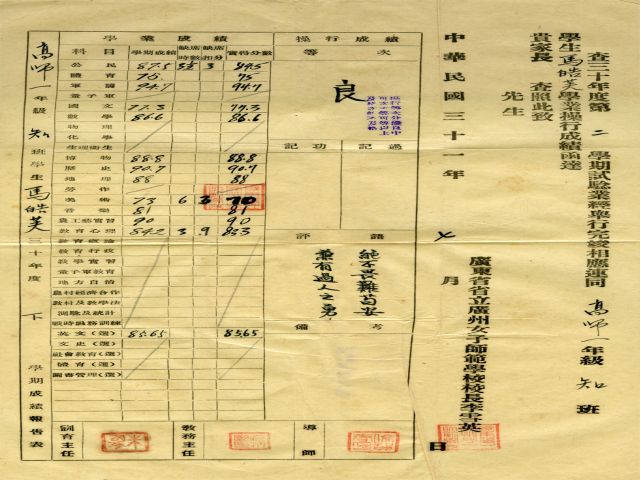 查三十年度第二學期試驗業經舉行完竣相應連同高师一年級知班
學生馬皓芙學業操行成績函達
貴家長 查照此致
先生
中華民國三十一年七月日
廣東省立廣州女子師範學校校長李雪英
操行成績
等次
良
操行等次分優良中可劣五等可等以上為及格
記過
記功
評語
能不畏難苟安
兼有過人之勇
備考
導師
學業成績
科目 學期成績 缺席時數 缺席扣分 實得分數
公民 87.5 3 84.5
體育 75 75
軍訓 94.7 94.7
童子軍
國文 77.3 77.3
數學 86.6 86.6
物理
化學
生理衛生
博物 88.8 88.8
歷史 90.7 90.7
地理 88 88
勞作
美術 73 6 3 70
音樂 81 81
農工藝實習 90 90
教育心理 84.2 3 .9 83.3
教育概論
教育行政
教學實習
童子軍教育
地方自治
農村經濟合作
教材及教學法
測驗及統計
戰時服務訓練
英文(選) 85.65 85.65
文史(選)
社會教育(選)
體育(選)
圖書管理(選)
教務主任
訓育主任
高师一年級知班學生馬皓芙三十年度下學期成績報告表